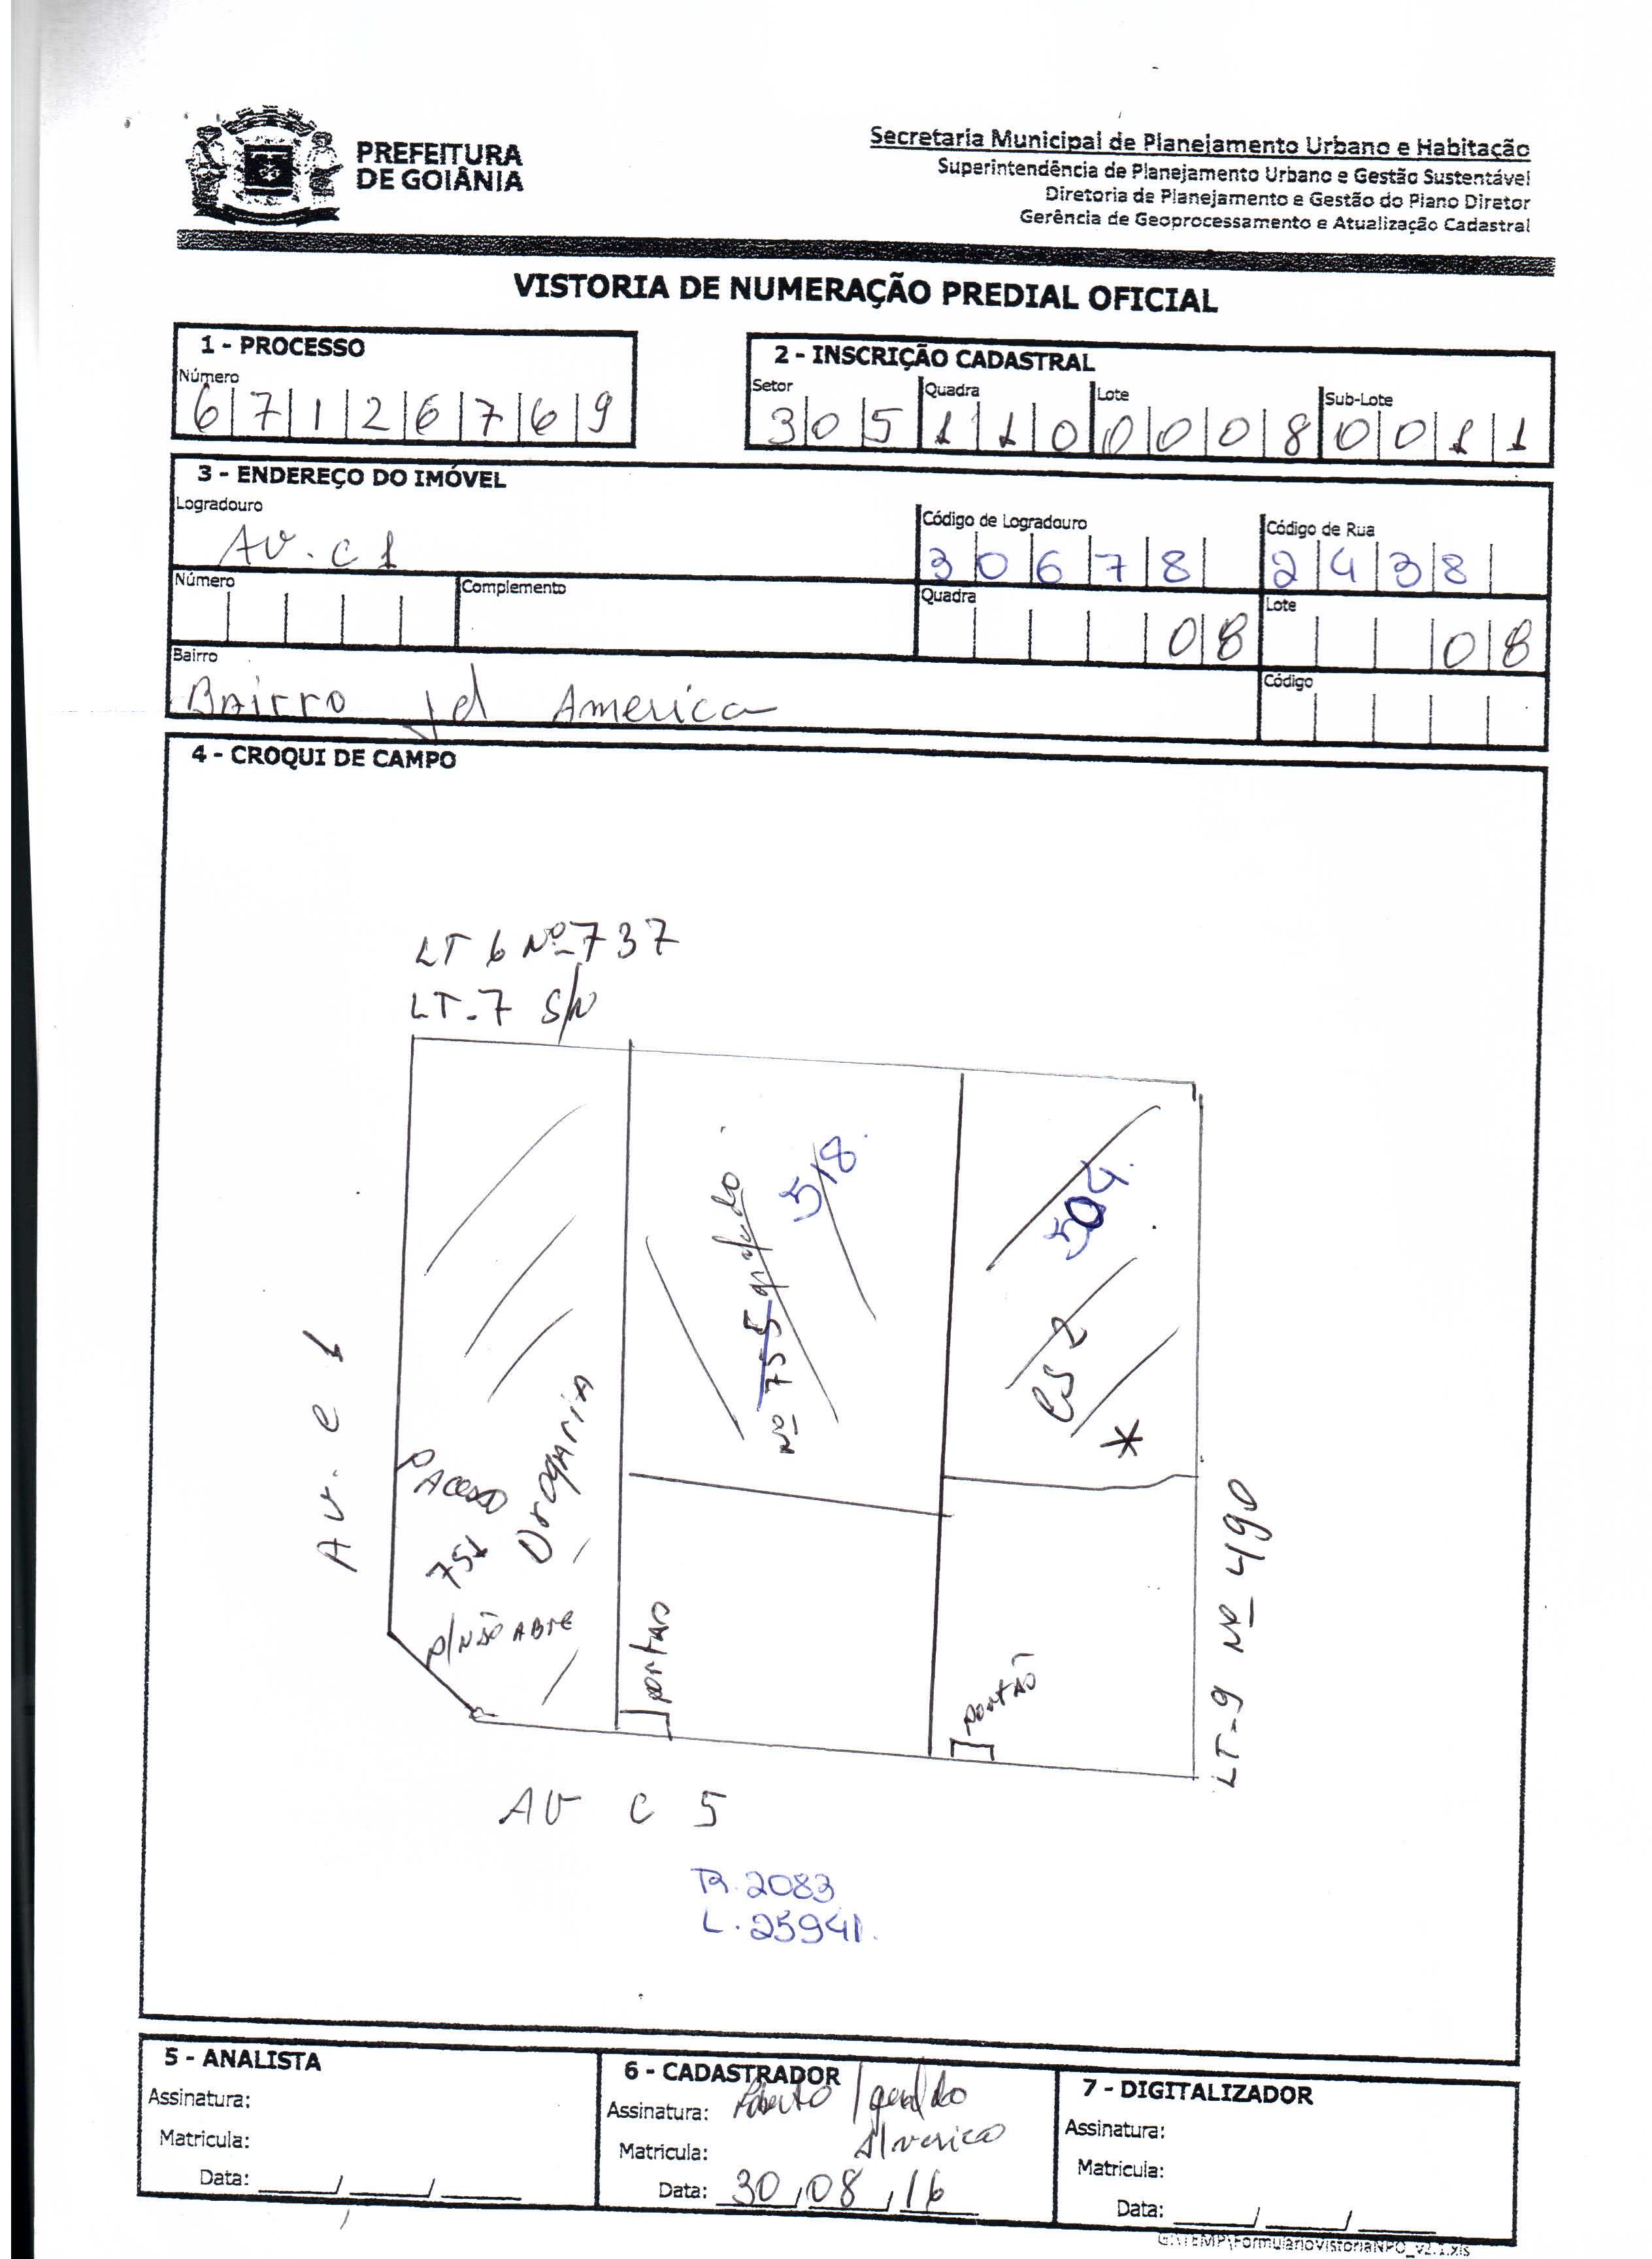 PREFEITURA
DE GOIÂNIA
Secretaria Municipal de Planejamento Urbano e Habitação
Superintendência de Planejamento Urbano e Gestão Sustentável
Diretoria de Planejamento e Gestão do Plano Diretor
Gerência de Geoprocessamento e Atualização Cadastral
VISTORIA DE NUMERAÇÃO PREDIAL OFICIAL
1 - PROCESSO
Número
6 7 1 2 6 7 6 9
2 - INSCRIÇÃO CADASTRAL
Setor Quadra Lote Sub-Lote
3 0 5 1 1 0 0 0 0 8 0 0 1 1
3 - ENDEREÇO DO IMÓVEL
Logradouro
AV. C 1
Código de Logradouro
3 0 6 7 8
Código de Rua
2 4 3 8
Número
Complemento
Quadra
0 8
Lote
0 8
Bairro
Bairro jd America
Código
4 - CROQUI DE CAMPO
LT 6 Nº 737
LT-7 S/N
Av. C 1
ACESSO
751
Drogaria
P/NÃO ABRE
Nº 755
518
504
CS 2
*
portao
portão
LT-9 Nº 490
AV C 5
R. 2083
L. 25941.
5 - ANALISTA
Assinatura:
Matricula:
Data: / /
6 - CADASTRADOR
Assinatura: Roberto / geraldo
Matricula:
Data: 30,08,16
7 - DIGITALIZADOR
Assinatura:
Matricula:
Data: / /
G:\TEMP\FormularioVistoriaNPO_v2.1.xls